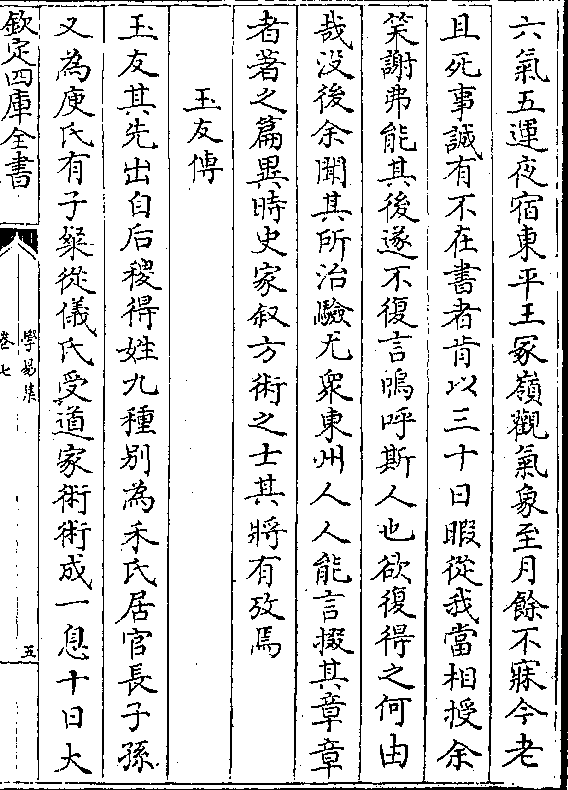 六氣五運夜宿東平王冢嶺觀氣象至月餘不寐今老
且死事誠有不在書者肯以三十日暇從我當相授余
笑謝弗能其後遂不復言嗚呼斯人也欲復得之何由
哉没後余聞其所治驗尤衆東州人人能言掇其章章
者著之篇異時史家叙方術之士其將有攷焉
玉友傳
玉友其先出自后稷得姓九種别為禾氏居官長子孫
又為庾氏有子粲從儀氏受道家術術成一息十日大
欽定四庫全書
學易集
卷七
五